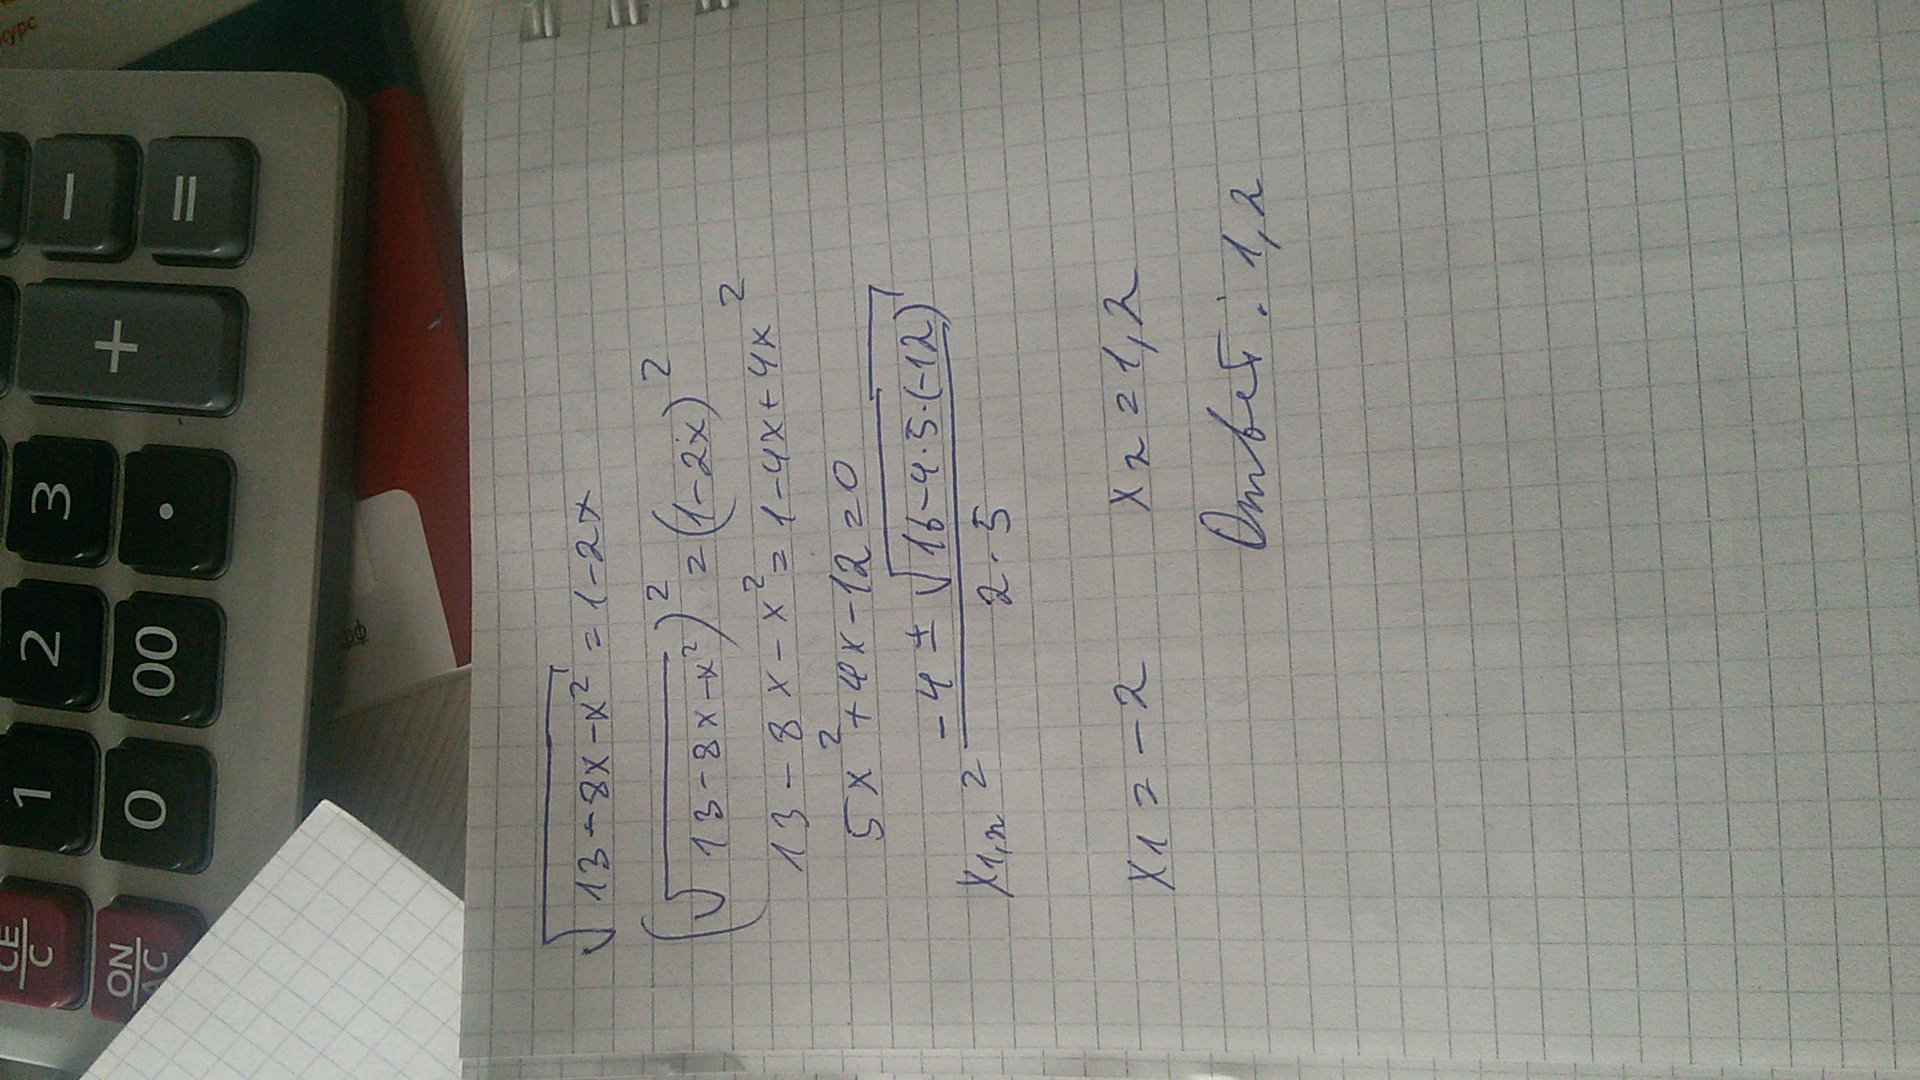 √(13-8x-x²) = 1-2x
(√(13-8x-x²))² = (1-2x)²
13-8x-x² = 1-4x+4x²
5x²+4x-12=0
x1,2 = (-4 ± √(16-4·5·(-12)))/(2·5)
x1 = -2 x2 = 1,2
Ответ: 1,2
курс
рф
- =
+
3 .
2 00
1 0
CE/C ON/AC